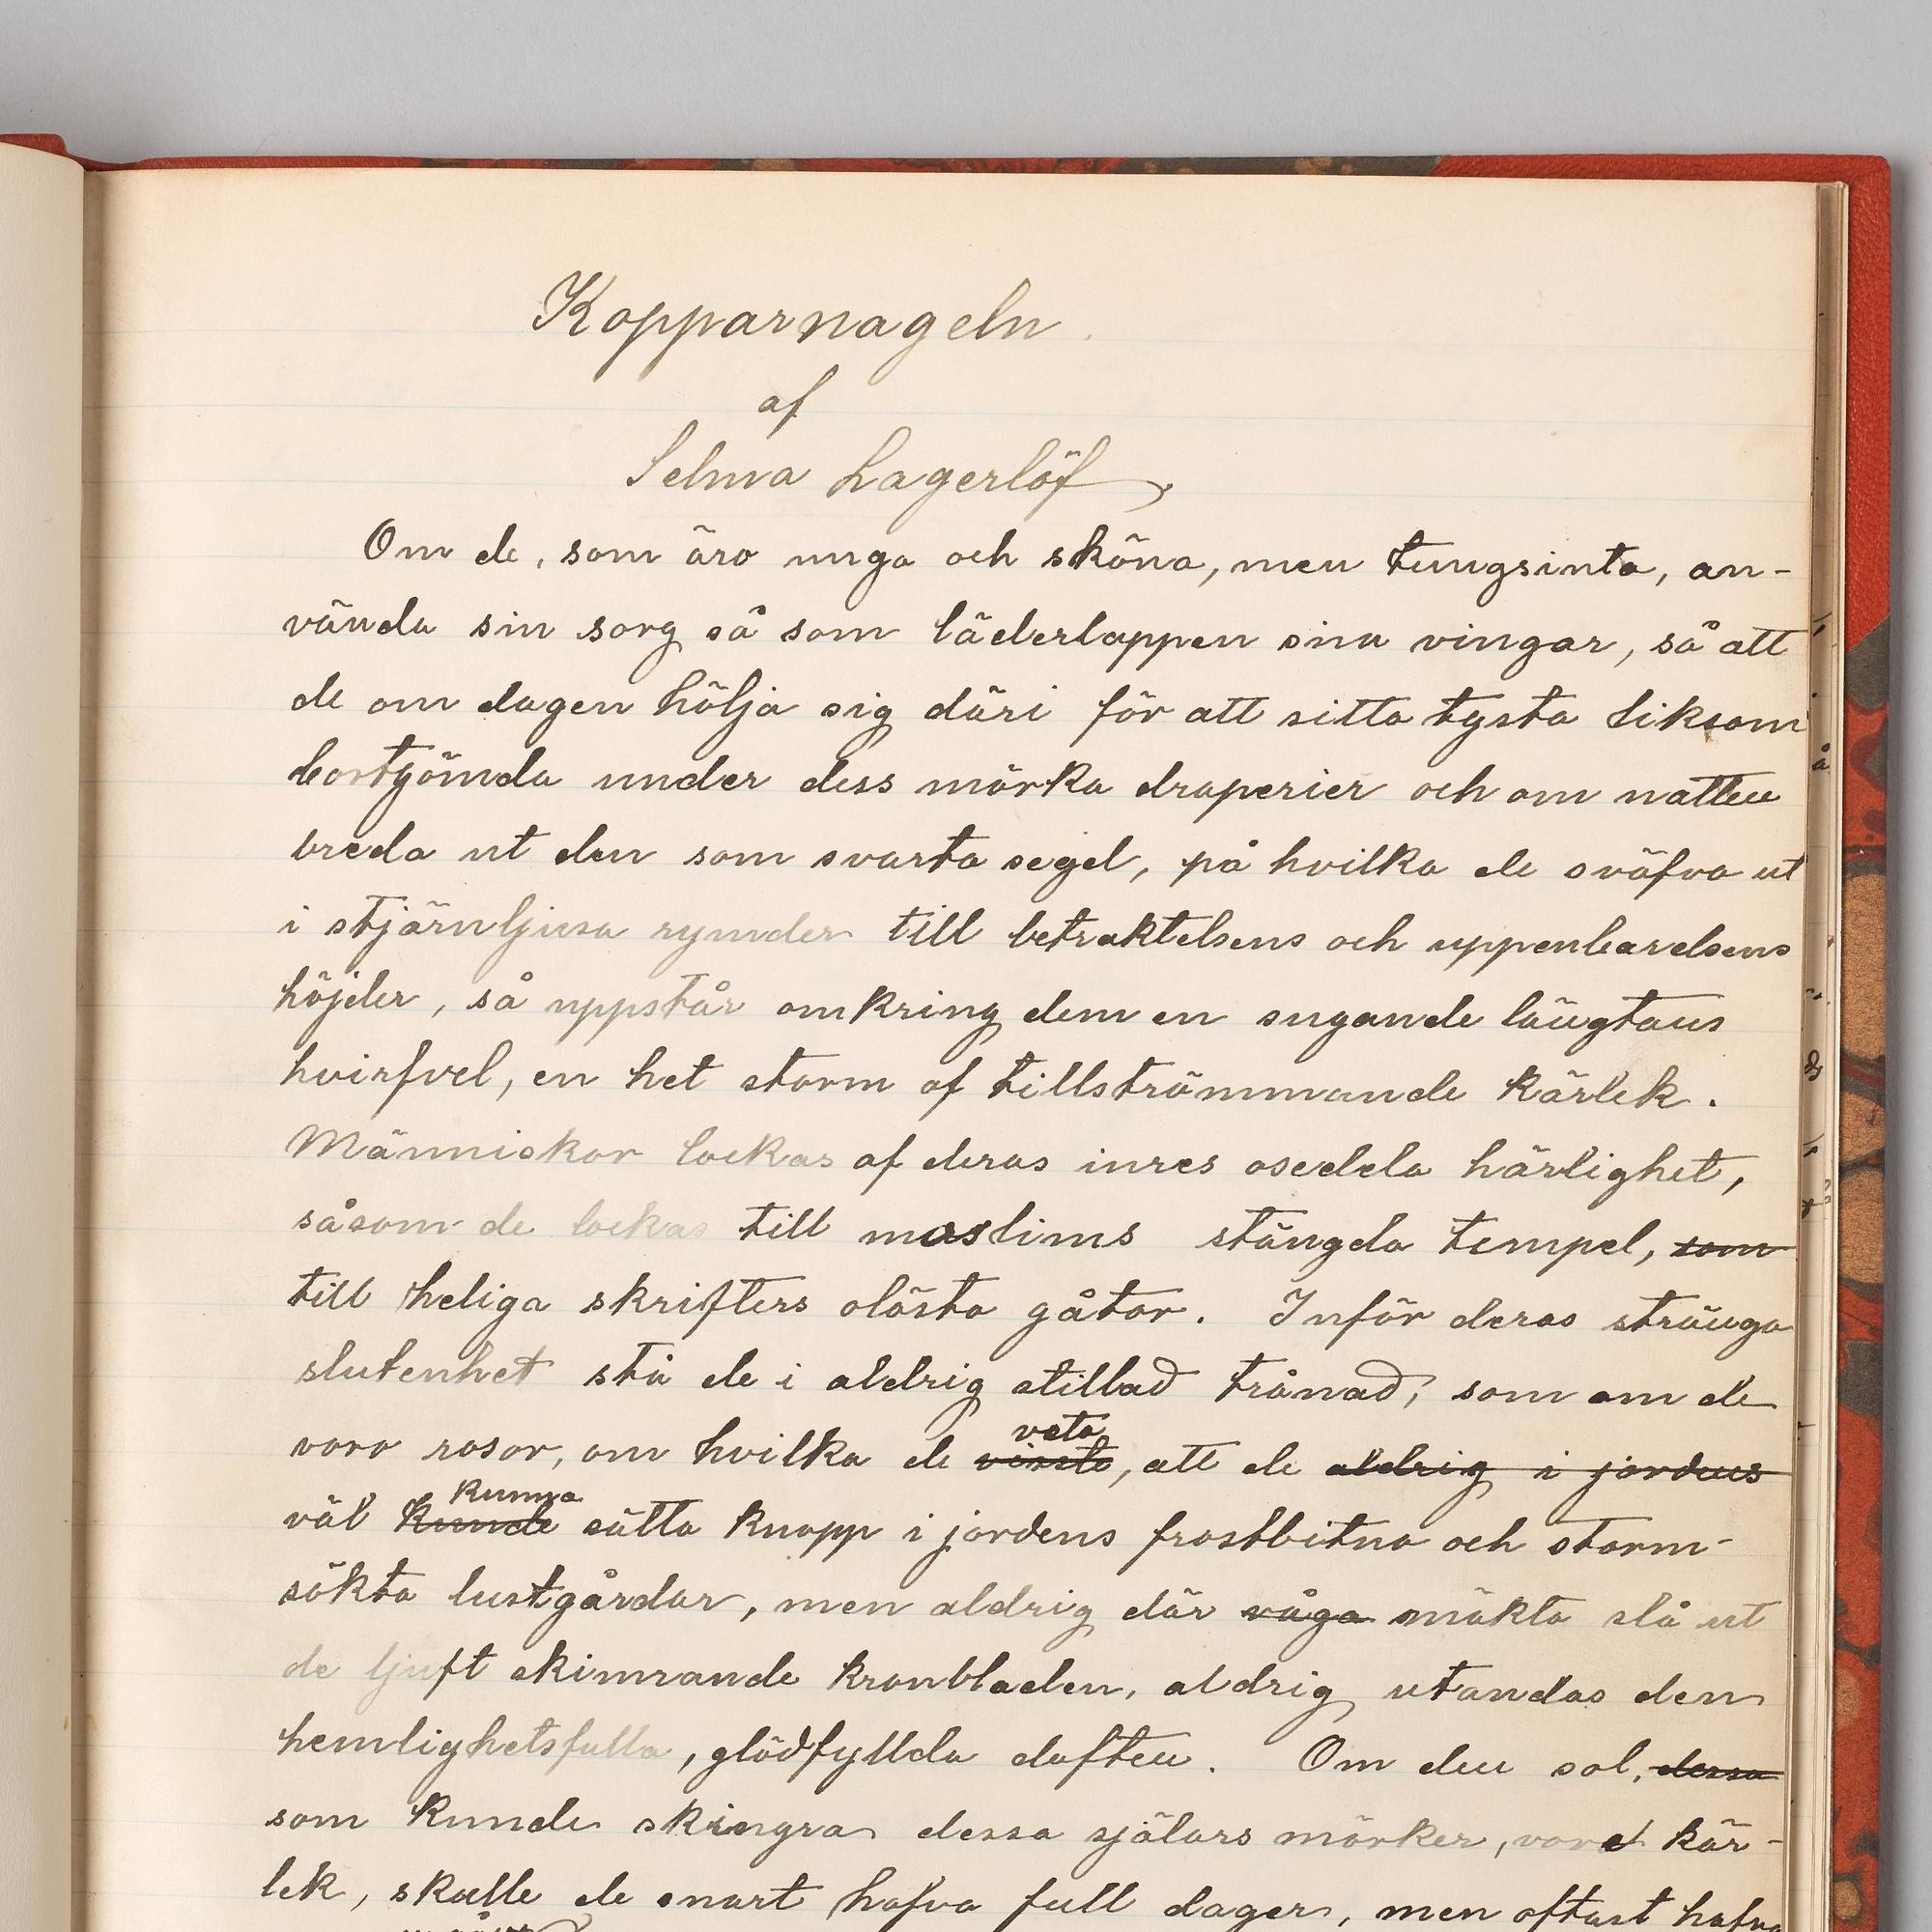 Kopparnageln.
af
Selma Lagerlöf.
Om de, som äro unga och sköna, men tungsinta, an-
vända sin sorg så som läderlappen sina vingar, så att
de om dagen hölja sig däri för att sitta tysta liksom
bortgömda under dess mörka draperier och om natten
breda ut den som svarta segel, på hvilka de sväfva ut
i stjärnljusa rymder till betraktelsens och uppenbarelsens
höjder, så uppstår omkring dem en sugande längtans
hvirfvel, en het storm af tillströmmande kärlek.
Människor lockas af deras inres osedda härlighet,
såsom de lockas till moslims stängda tempel, som
till heliga skrifters olösta gåtor. Inför deras stränga
slutenhet stå de i aldrig stillad trånad, som om de
veta
voro rosor, om hvilka de visste, att de aldrig i jordens
kunna
väl kunde sätta knopp i jordens frostbitna och storm-
sökta lustgårdar, men aldrig där våga mäkta slå ut
de ljuft skimrande kronbladen, aldrig utandas den
hemlighetsfulla, glödfyllda doften. Om den sol, dessa
som kunde skingra dessa själars mörker, vore kär-
lek, skulle de snart hafva full dager, men oftast hafva